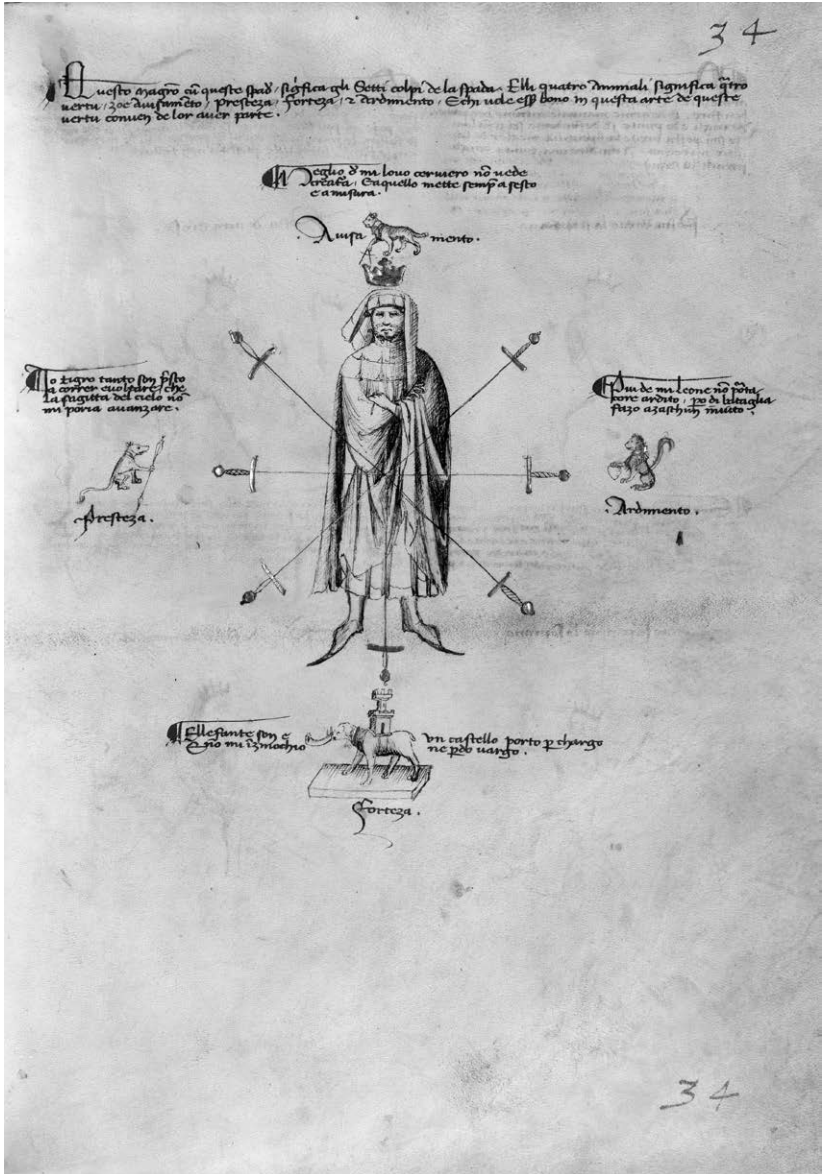 34
Questo Magro cū queste spad, significa gli Setti colpi de la spada. Elli quatro Animali significa q̄tro
vertu, zoe Avisamēto, Presteza, Forteza, & Ardimento. E chi vole ess̄ bono in questa arte de queste
vertu conven de lor aver parte.
Meglio d' mi lovo cerviero nō vede
creatūa, Eaquello mette semp̄ a sesto
e a misura.
. Avisa mento .
Io tigro tanto son p̄sto
a correr e voltare, che
la sagitta del cielo nō
mi poria avanzare.
Piu de mi leone nō porta
core ardito, po di bataglia
fazo a zaschun invito.
Presteza .
. Ardimento .
Ellefante son e un castello porto p̄ chargo
E nō mi inzinochio ne p̄do vargo .
Forteza .
34